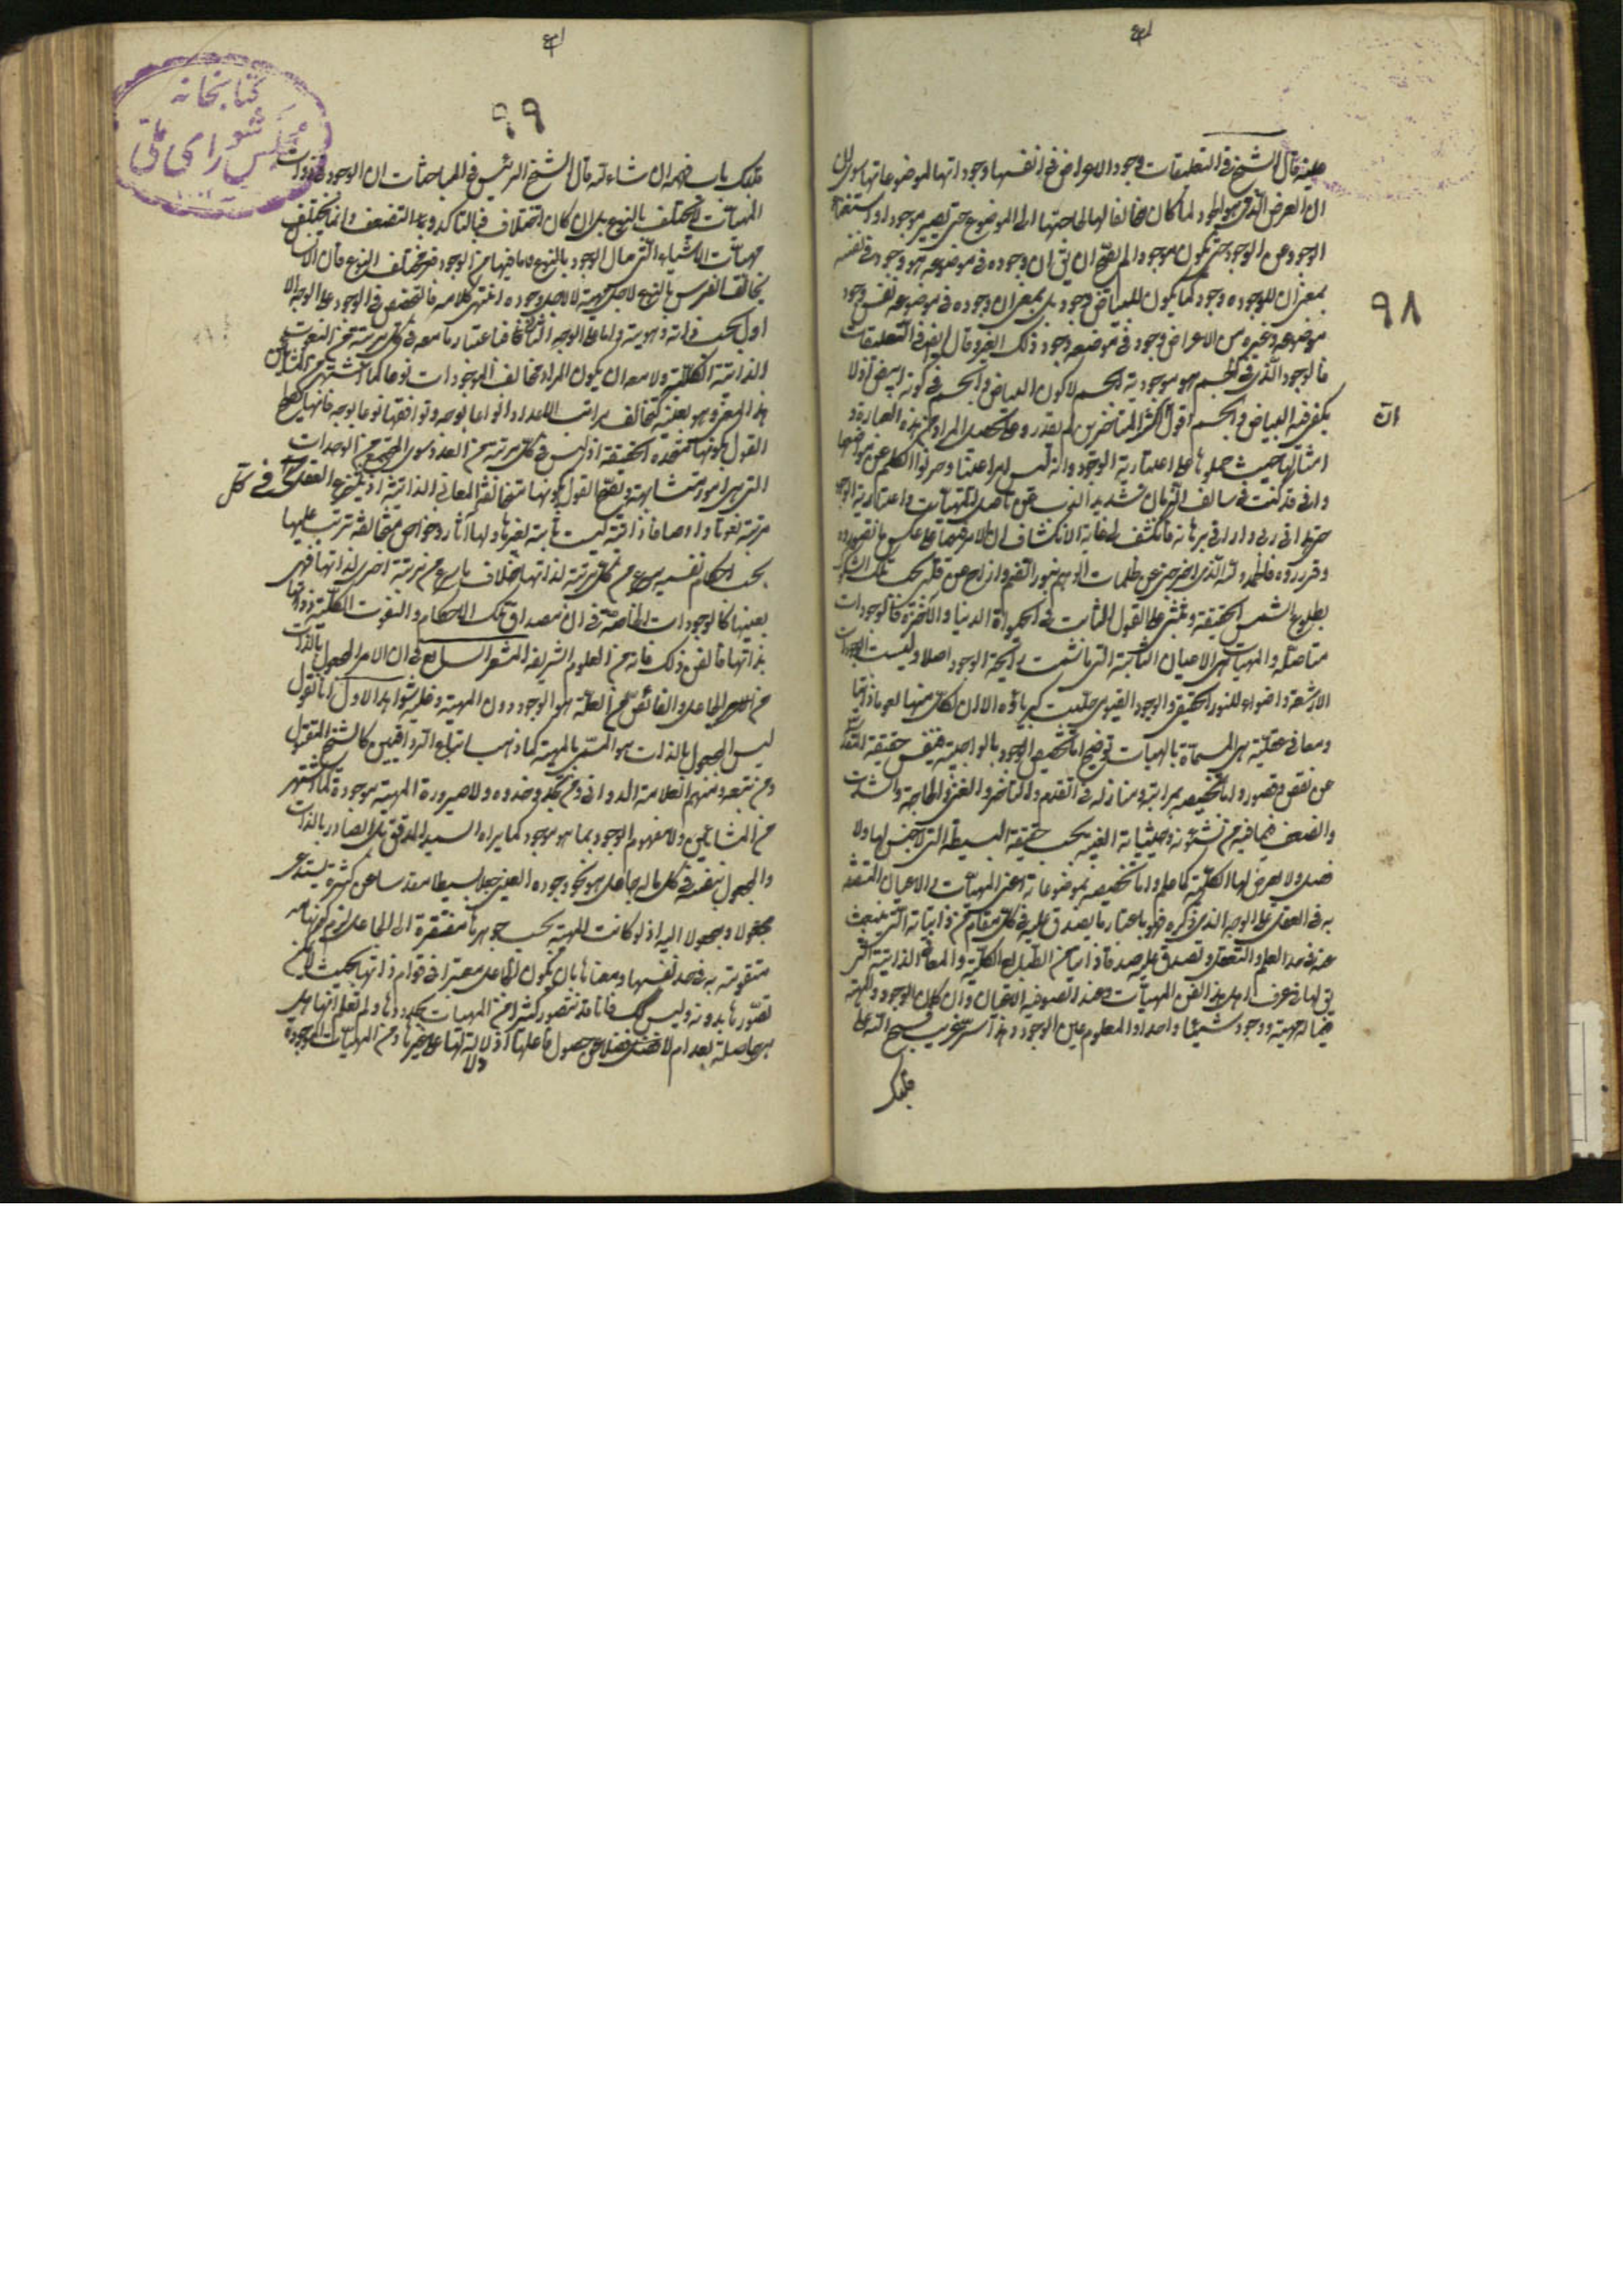 ٩٨
عليه قال الشيخ في التعليقات وجود الاعراض في انفسها وجوداتها لموضوعاتها سوى ان
ان العرض الذي هو الوجود لما كان مخالفا لها لحاجتها الى الموضوع حتى يصير موجودا واستغناء
الوجود عن الوجود حتى يكون موجودا لم يصح ان يق ان وجوده في موضوعه هو وجوده في نفسه
بمعنى ان للوجود وجود كما يكون للبياض وجود بل بمعنى ان وجوده في موضوعه نفس وجود
موضوعه وغيره من الاعراض وجود في موضوعه وجود ذلك الغير وقال ايضا في التعليقات
فالوجود الذي في الجسم هو موجودية الجسم لا كون البياض والجسم في كونه ابيض اذ لا
يكفي فيه البياض والجسم اقول اكثر المتاخرين لم يقدروا على تحصيل المراد من هذه العبارة و
امثالها حيث حملوها على اعتبارية الوجود وانه ليس امرا عينيا وحرفوا الكلم عن مواضعها
واني قد كنت في سالف الزمان شديد الذب عن تاصل المهيات واعتبارية الوجود
حتى هداني ربي واراني برهانه فانكشف لي غاية الانكشاف ان الامر فيها على عكس ما تصوروه
وقرروه فالحمد لله الذي اخرجني عن ظلمات الوهم بنور الفهم وازاح عن قلبي سحب تلك الشكوك
بطلوع شمس الحقيقة وثبتني على القول الثابت في الحيوة الدنيا والاخرة فالوجودات
متاصلة والمهيات هي الاعيان الثابتة التي ما شمت رائحة الوجود اصلا وليست الوجودات
الا اشعة واضواء للنور الحقيقي والوجود القيومي جلت كبرياؤه الا ان لكل منها نعوتا ذاتية
ومعاني عقلية هي المسماة بالمهيات توضيح اما تخصيص الوجود بالواجبية فبنفس حقيقته المقدسة
عن نقص وقصور واما تخصيصه بمراتبه ومنازله في التقدم والتاخر والغنى والحاجة والشدة
والضعف فبما فيه من شئونه وحيثياته العينية بحسب حقيقته البسيطة التي لا جنس لها ولا
فصل ولا يعرض لها الكلية كما علم واما تخصيصه بموضوعاته اعني المهيات والاعيان المتصفة
به في العقل على الوجه الذي مر ذكره فهو باعتبار ما يصدق عليه في كل مقام من ذاتياته التي تنبعث
عنه في حد العلم والتعقل ويصدق عليه صدقا ذاتيا من الطبايع الكلية والمعاني الذاتية التي
يق لها في عرف اهل هذا الفن المهيات وعند الصوفية الاعيان وان كان الوجود والمهية
فيما له مهية ووجود شيئا واحدا والمعلوم عين الموجود وهذا سر غريب فتح الله على
قلبك
ان
٩٩
كتابخانه
مجلس شورای ملی
قلبك باب فهمه ان شاء الله قال الشيخ الرئيس في المباحثات ان الوجود في ذوات
المهيات لا يختلف بالنوع بل ان كان اختلاف فبالتاكد والتضعف وانما يختلف
مهيات الاشياء التي تنال الوجود بالنوع وما فيها من الوجود غير مختلف النوع فان الانسان
يخالف الفرس بالنوع لاجل مهية لا لاجل وجوده انتهى كلامه فالتخصيص في الوجود على الوجه الا
اول بحسب ذاته وهويته واما على الوجه الثاني فباعتبار ما معه في كل مرتبة من النعوت
الذاتية الكلية ولا يبعد ان يكون المراد بتخالف الوجودات نوعا كما اشتهر من المشائين
هذا المعنى وهو بعينه كتخالف مراتب الاعداد انواعا بوجه وتوافقها نوعا بوجه فانها يصح
القول بكونها متحدة الحقيقة اذ ليس في كل مرتبة من العدد سوى المجتمع من الوحدات
التي هي امور متشابهة ويصح القول بكونها متخالفة المعاني الذاتية اذ ينتزع العقل من كل
مرتبة نعوتا واوصافا ذاتية ليست ثابتة لغيرها ولها آثار وخواص متخالفة تترتب عليها
بحسب احكام نفسية ينتزع من كل مرتبة لذاتها خلاف ما ينتزع من مرتبة اخرى لذاتها فهي
بعينها كالوجودات الخاصة في ان مصداق تلك الاحكام والنعوت الكلية ذواتها
بذاتها فاتقن ذلك فانه من العلوم الشريفة المشعر السابع في ان الامر المجعول بالذات
من الجاعل والفائض من العلة هو الوجود دون المهية وعليه شواهد الاول انا نقول
ليس المجعول بالذات هو المسمى بالمهية كما ذهب اليه اتباع الرواقيين كالشيخ المقتول
ومن تبعه ومنهم العلامة الدواني ومن يحذو حذوه ولا صيرورة المهية موجودة كما اشتهر
من المشائين ولا مفهوم الموجود بما هو موجود كما يراه السيد المدقق بل الصادر بالذات
والمجعول بنفسه في كل ما له جاعل هو نحو وجوده العيني جعلا بسيطا مقدسا عن كثرة يستدعي
مجعولا ومجعولا اليه اذ لو كانت المهية بحسب جوهرها مفتقرة الى الجاعل لزم كونها
متقومة به في حد نفسها ومعناها بان يكون الجاعل معتبرا في قوام ذاتها بحيث لا يمكن
تصورها بدونه وليس كك فانا قد نتصور كثيرا من المهيات بحدودها ولم نعلم انها هل
هي حاصلة بعد ام لا فضلا عن حصول فاعلها اذ لا دلالة لها على غيرها ومن المهيات الموجودة